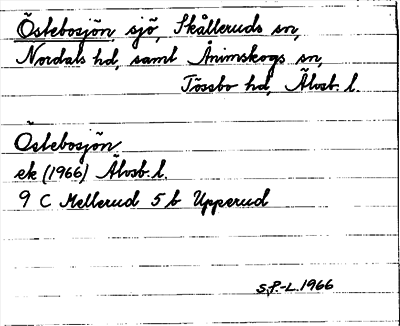 Östebosjön sjö, Skålleruds sn,
Nordals hd, samt Ånimskogs sn,
Tössbo hd, Älvsb. l.
Östebosjön
ek (1966) Älvsb. l.
9 C Mellerud 5 b Upperud
S.P.-L. 1966